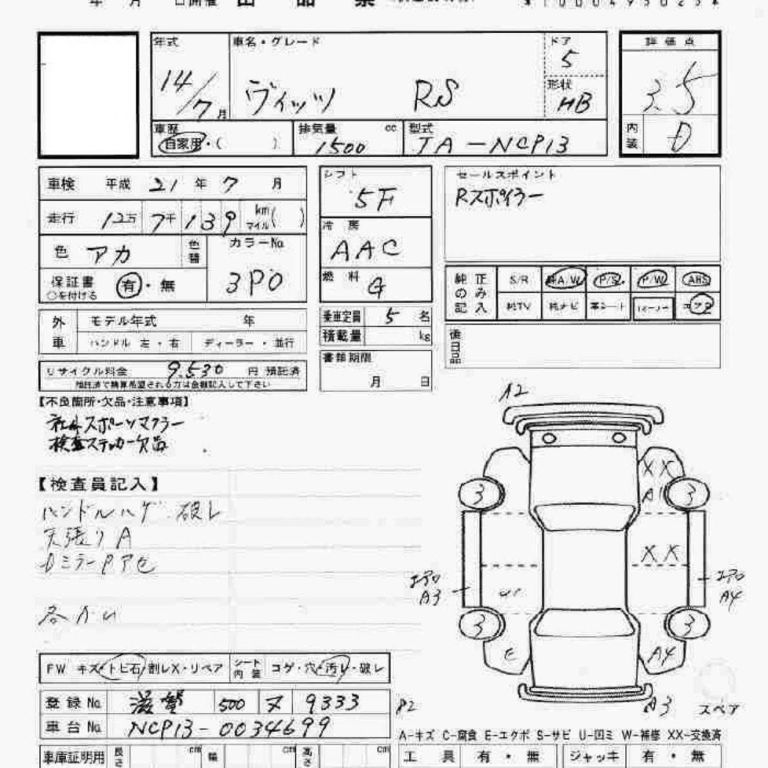 年式 車名・グレード ドア 評価点
14/7月 ヴィッツ RS 5 3.5
形状 HB
車歴 自家用・( ) 排気量 1500 cc 型式 TA-NCP13 内装 D
車検 平成 21 年 7 月 シフト 5F セールスポイント
Rスポイラー
走行 12万 7千 139 km マイル ( ) 冷房 AAC
色 アカ 色替 カラーNo 3P0
保証書 ○を付ける 有・無 燃料 G
純正のみ記入 S/R 純A/W P/S P/W ABS
純TV 純ナビ 革シート エアB
外車 モデル年式 年 乗車定員 5 名
ハンドル 左・右 ディーラー・並行 積載量 kg
後日品
リサイクル料金 9,530 円 預託済 書類期限
預託済で精算希望される方は金額記入して下さい 月 日
【不良箇所・欠品・注意事項】
社外スポーツマフラー
検査ステッカー欠品
【検査員記入】
ハンドルハゲ 破レ
天張りA
A2
XX
A1
3 3
XX
エアロ A3
エアロ A4
3 3
E A4
A2 A3 スペア
FW キズ・トビ石・割レX・リペア シート内装 コゲ・穴・汚レ・破レ
登録No 滋賀 500 ヌ 9333
車台No NCP13-0034699
A-キズ C-腐食 E-エクボ S-サビ U-凹ミ W-補修 XX-交換済
車庫証明用 長さ cm 幅 cm 高さ cm 工具 有・無 ジャッキ 有・無